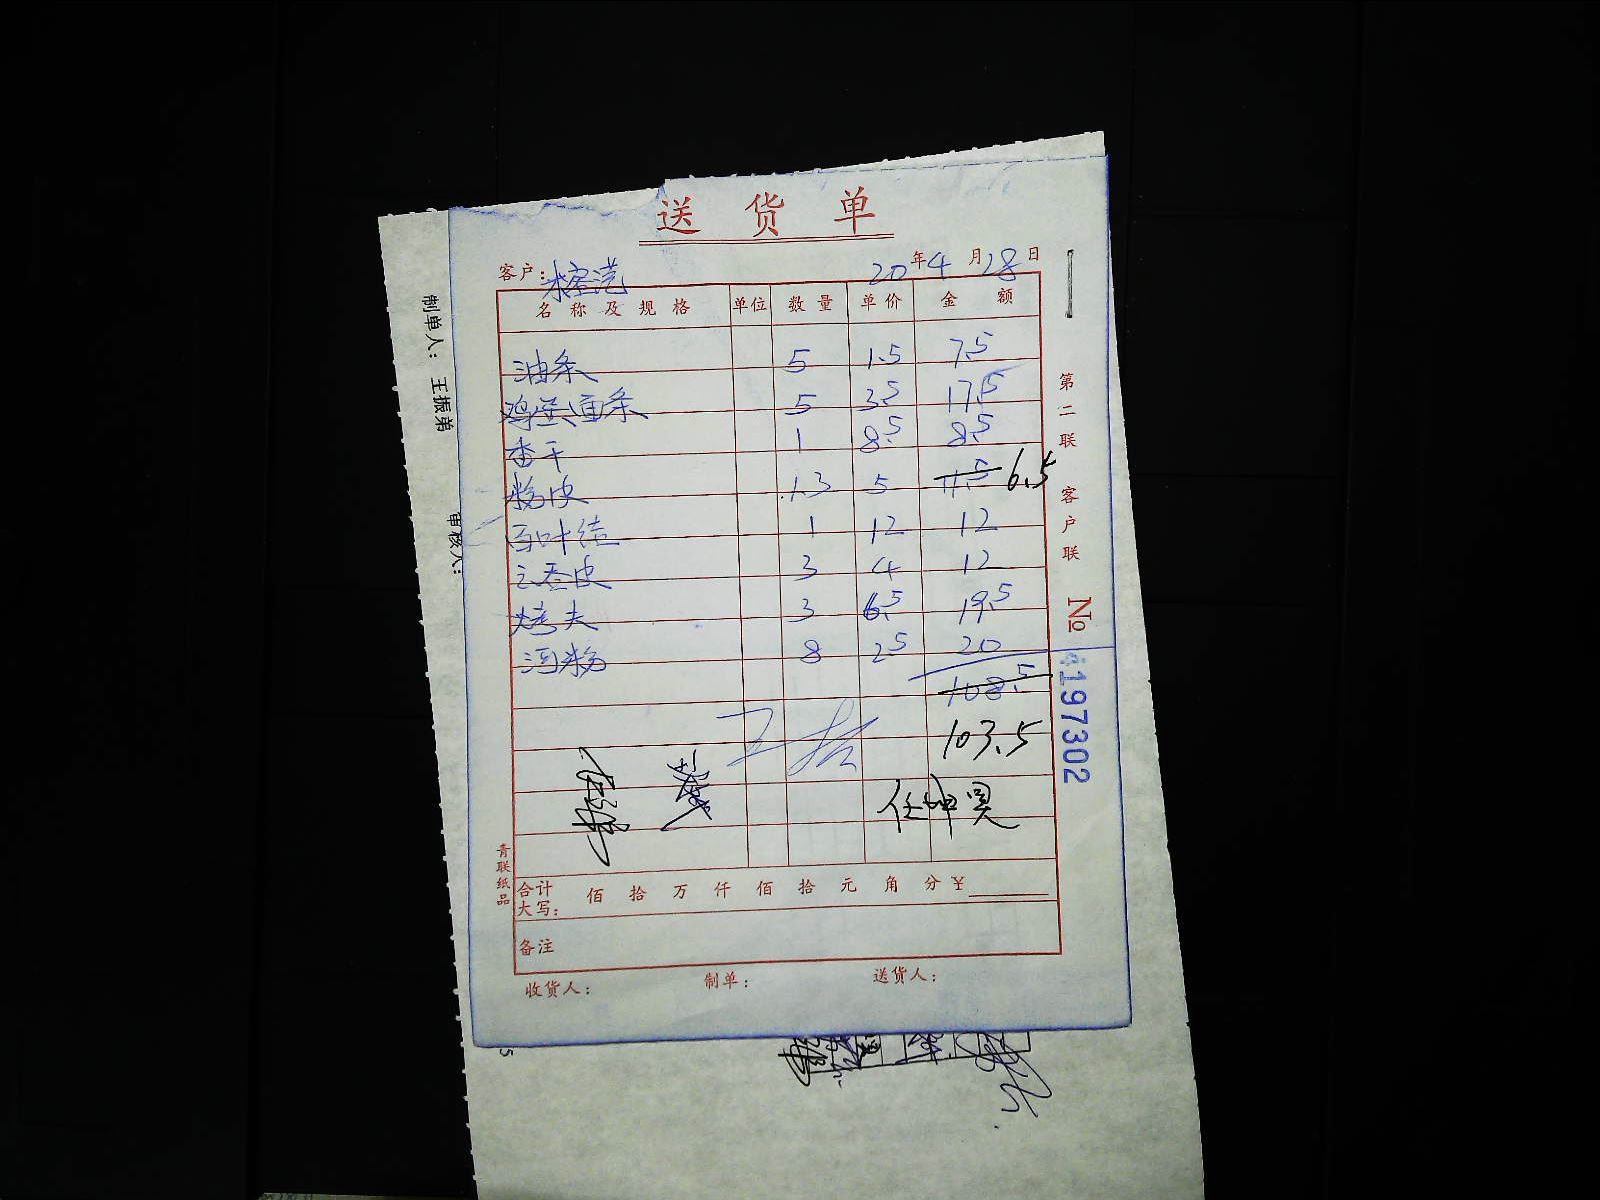 送货单
客户: 20年4月28日
名称及规格 单位 数量 单价 金额
油条 5 1.5 7.5
鸡蛋面条 5 3.5 17.5
香干 1 8.5 8.5
粉皮 1.3 5 11.5 6.5
百叶结 1 12 12
云吞皮 3 4 12
烤夫 3 6.5 19.5
河粉 8 2.5 20
108.5
103.5
任坤昊
合计大写: 佰 拾 万 仟 佰 拾 元 角 分 ¥
备注
收货人: 制单: 送货人:
第二联 客户联
№ 4197302
青联纸品
制单人: 王振弟
审核人: